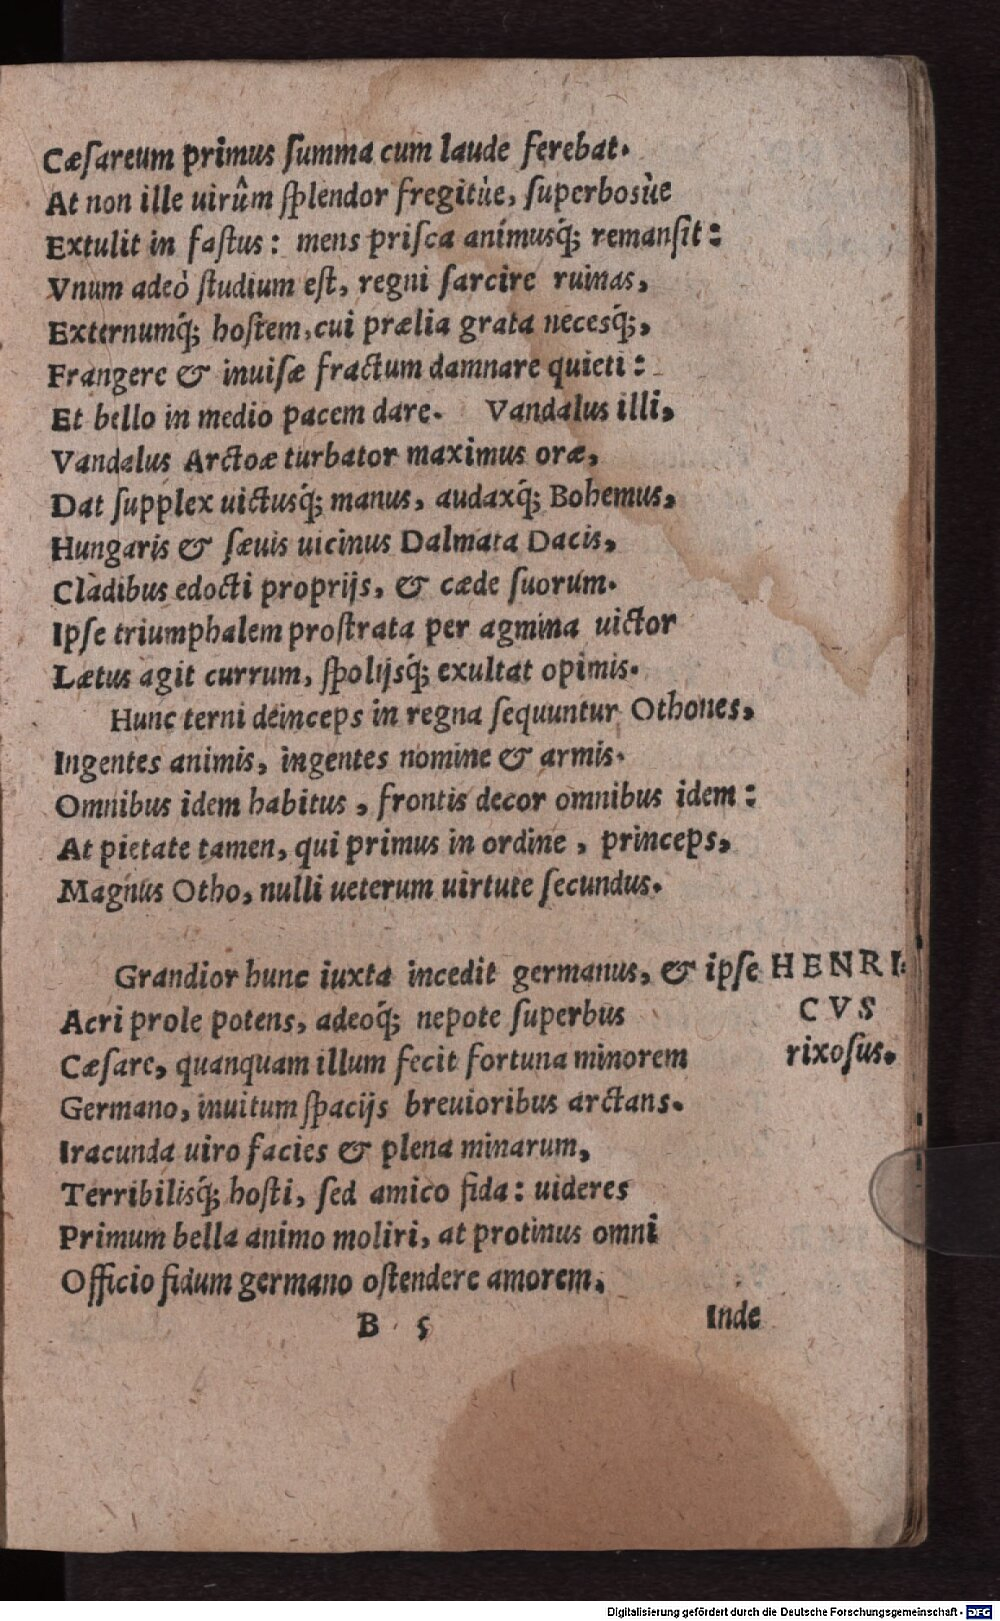 Cæſareum primus ſumma cum laude ferebat.
At non ille uirûm ſplendor fregitùe, ſuperbosùe
Extulit in faſtus: mens priſca animusq́; remanſit:
Vnum adeò ſtudium eſt, regni ſarcire ruinas,
Externumq́; hoſtem, cui prælia grata necesq́;,
Frangere & inuiſæ fractum damnare quieti:
Et bello in medio pacem dare. Vandalus illi,
Vandalus Arctoæ turbator maximus oræ,
Dat ſupplex uictusq́; manus, audaxq́; Bohemus,
Hungaris & ſæuis uicinus Dalmata Dacis,
Cladibus edocti proprijs, & cæde ſuorum.
Ipſe triumphalem proſtrata per agmina uictor
Lætus agit currum, ſpolijsq́; exultat opimis.
Hunc terni deinceps in regna ſequuntur Othones,
Ingentes animis, ingentes nomine & armis.
Omnibus idem habitus, frontis decor omnibus idem:
At pietate tamen, qui primus in ordine, princeps,
Magnus Otho, nulli ueterum uirtute ſecundus.
Grandior hunc iuxta incedit germanus, & ipſe
HENRI-
CVS
rixoſus.
Acri prole potens, adeoq́; nepote ſuperbus
Cæſare, quanquam illum fecit fortuna minorem
Germano, inuitum ſpacijs breuioribus arctans.
Iracunda uiro facies & plena minarum,
Terribilisq́; hoſti, ſed amico fida: uideres
Primum bella animo moliri, at protinus omni
Officio fidum germano oſtendere amorem,
B 5
Inde
Digitalisierung gefördert durch die Deutsche Forschungsgemeinschaft - DFG